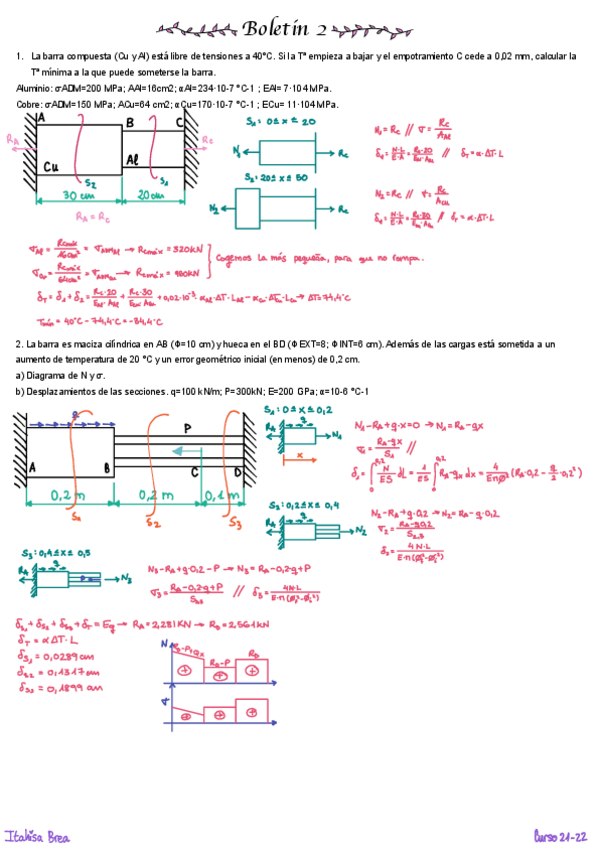 Boletín 2
1. La barra compuesta (Cu y Al) está libre de tensiones a 40°C. Si la Tª empieza a bajar y el empotramiento C cede a 0,02 mm, calcular la
Tª mínima a la que puede someterse la barra.
Aluminio: σADM=200 MPa; AAl=16cm2; αAl=234·10-7 °C-1 ; EAl= 7·104 MPa.
Cobre: σADM=150 MPa; ACu=64 cm2; αCu=170·10-7 °C-1 ; ECu= 11·104 MPa.
A B C
RA Rc
Cu Al
S2 S1
30 cm 20 cm
RA = Rc
S1: 0 ≤ x ≤ 20
N1 Rc
S2: 20 ≤ x ≤ 50
N2 Rc
N1 = Rc // σ = Rc/AAl
δ1 = N·L/E·A = Rc·20/EAl·AAl // δT = α·ΔT·L
N2 = Rc // σ = Rc/ACu
σAl = Rcmáx/16cm² = σADMAl → Rcmáx = 320kN
Cogemos la más pequeña, para que no rompa.
δT = δ1 + δ2 = Rc·20/EAl·AAl + Rc·30/ECu·ACu + 0,02·10⁻³ · αAl·ΔT·LAl – αCu·ΔT·LCu → ΔT = 74,4°C
Tmín = 40°C – 74,4°C = –34,4°C
2. La barra es maciza cilíndrica en AB (Φ=10 cm) y hueca en el BD (Φ EXT=8; Φ INT=6 cm). Además de las cargas está sometida a un
aumento de temperatura de 20 °C y un error geométrico inicial (en menos) de 0,2 cm.
a) Diagrama de N y σ.
b) Desplazamientos de las secciones. q=100 kN/m; P=300kN; E=200 GPa; α=10-6 °C-1
q
P
A B C D
0,2 m 0,2 m 0,1 m
S1 S2 S3
S1: 0 ≤ x ≤ 0,2
RA N1
x
N1 – RA + q·x = 0 → N1 = RA – qx
σ1 = RA – qx/S1 //
S2: 0,2 ≤ x ≤ 0,4
RA N2
N2 – RA + q·0,2 → N2 = RA – q·0,2
S3: 0,4 ≤ x ≤ 0,5
RA N3
N3 – RA + q·0,2 – P → N3 = RA – 0,2·q + P
σ3 = RA – 0,2·q + P/S2,3
δS1 + δS2 + δS3 + δT = Eg → RA = 2,281KN → RD = 2,561kN
δT = αΔT·L
δS1 = 0,0289cm
δS2 = 0,1317cm
δS3 = 0,1899 cm
N
RA–P
RD
σ
Itahisa Brea
Curso 21-22